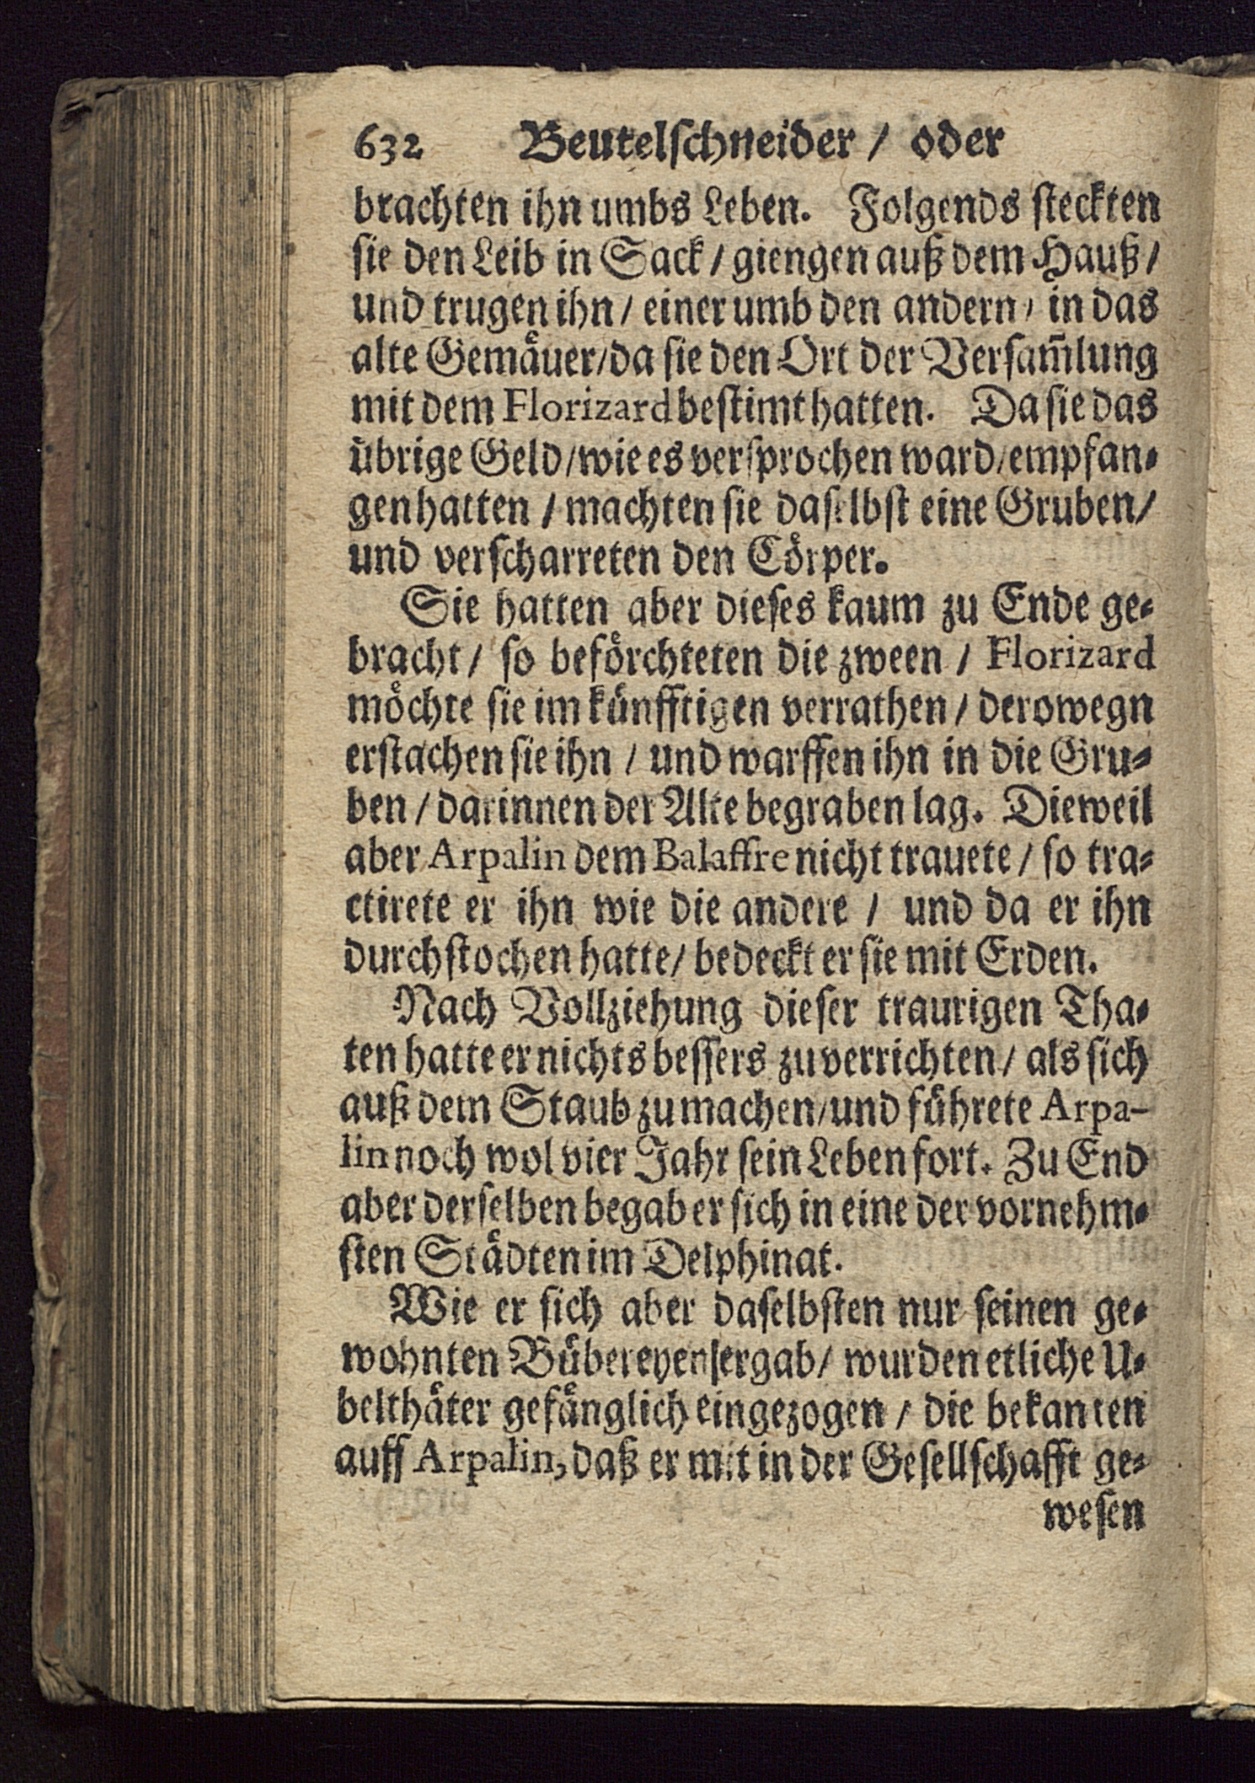 632 Beutelschneider / oder
brachten ihn umbs Leben. Folgends steckten
sie den Leib in Sack / giengen auß dem Hauß /
und trugen ihn / einer umb den andern / in das
alte Gemäuer / da sie den Ort der Versam̃lung
mit dem Florizard bestimt hatten. Da sie das
übrige Geld / wie es versprochen ward / empfan-
gen hatten / machten sie daselbst eine Gruben /
und verscharreten den Cörper.
Sie hatten aber dieses kaum zu Ende ge-
bracht / so beförchteten die zween / Florizard
möchte sie im künfftigen verrathen / derowegn
erstachen sie ihn / und warffen ihn in die Gru-
ben / darinnen der Alte begraben lag. Dieweil
aber Arpalin dem Balaffre nicht trauete / so tra-
ctirete er ihn wie die andere / und da er ihn
durchstochen hatte / bedeckt er sie mit Erden.
Nach Vollziehung dieser traurigen Tha-
ten hatte er nichts bessers zu verrichten / als sich
auß dem Staub zu machen / und führete Arpa-
lin noch wol vier Jahr sein Leben fort. Zu End
aber derselben begab er sich in eine der vornehm-
sten Städten im Delphinat.
Wie er sich aber daselbsten nur seinen ge-
wohnten Bübereyen ergab / wurden etliche U-
belthäter gefänglich eingezogen / die bekanten
auff Arpalin, daß er mit in der Gesellschafft ge-
wesen